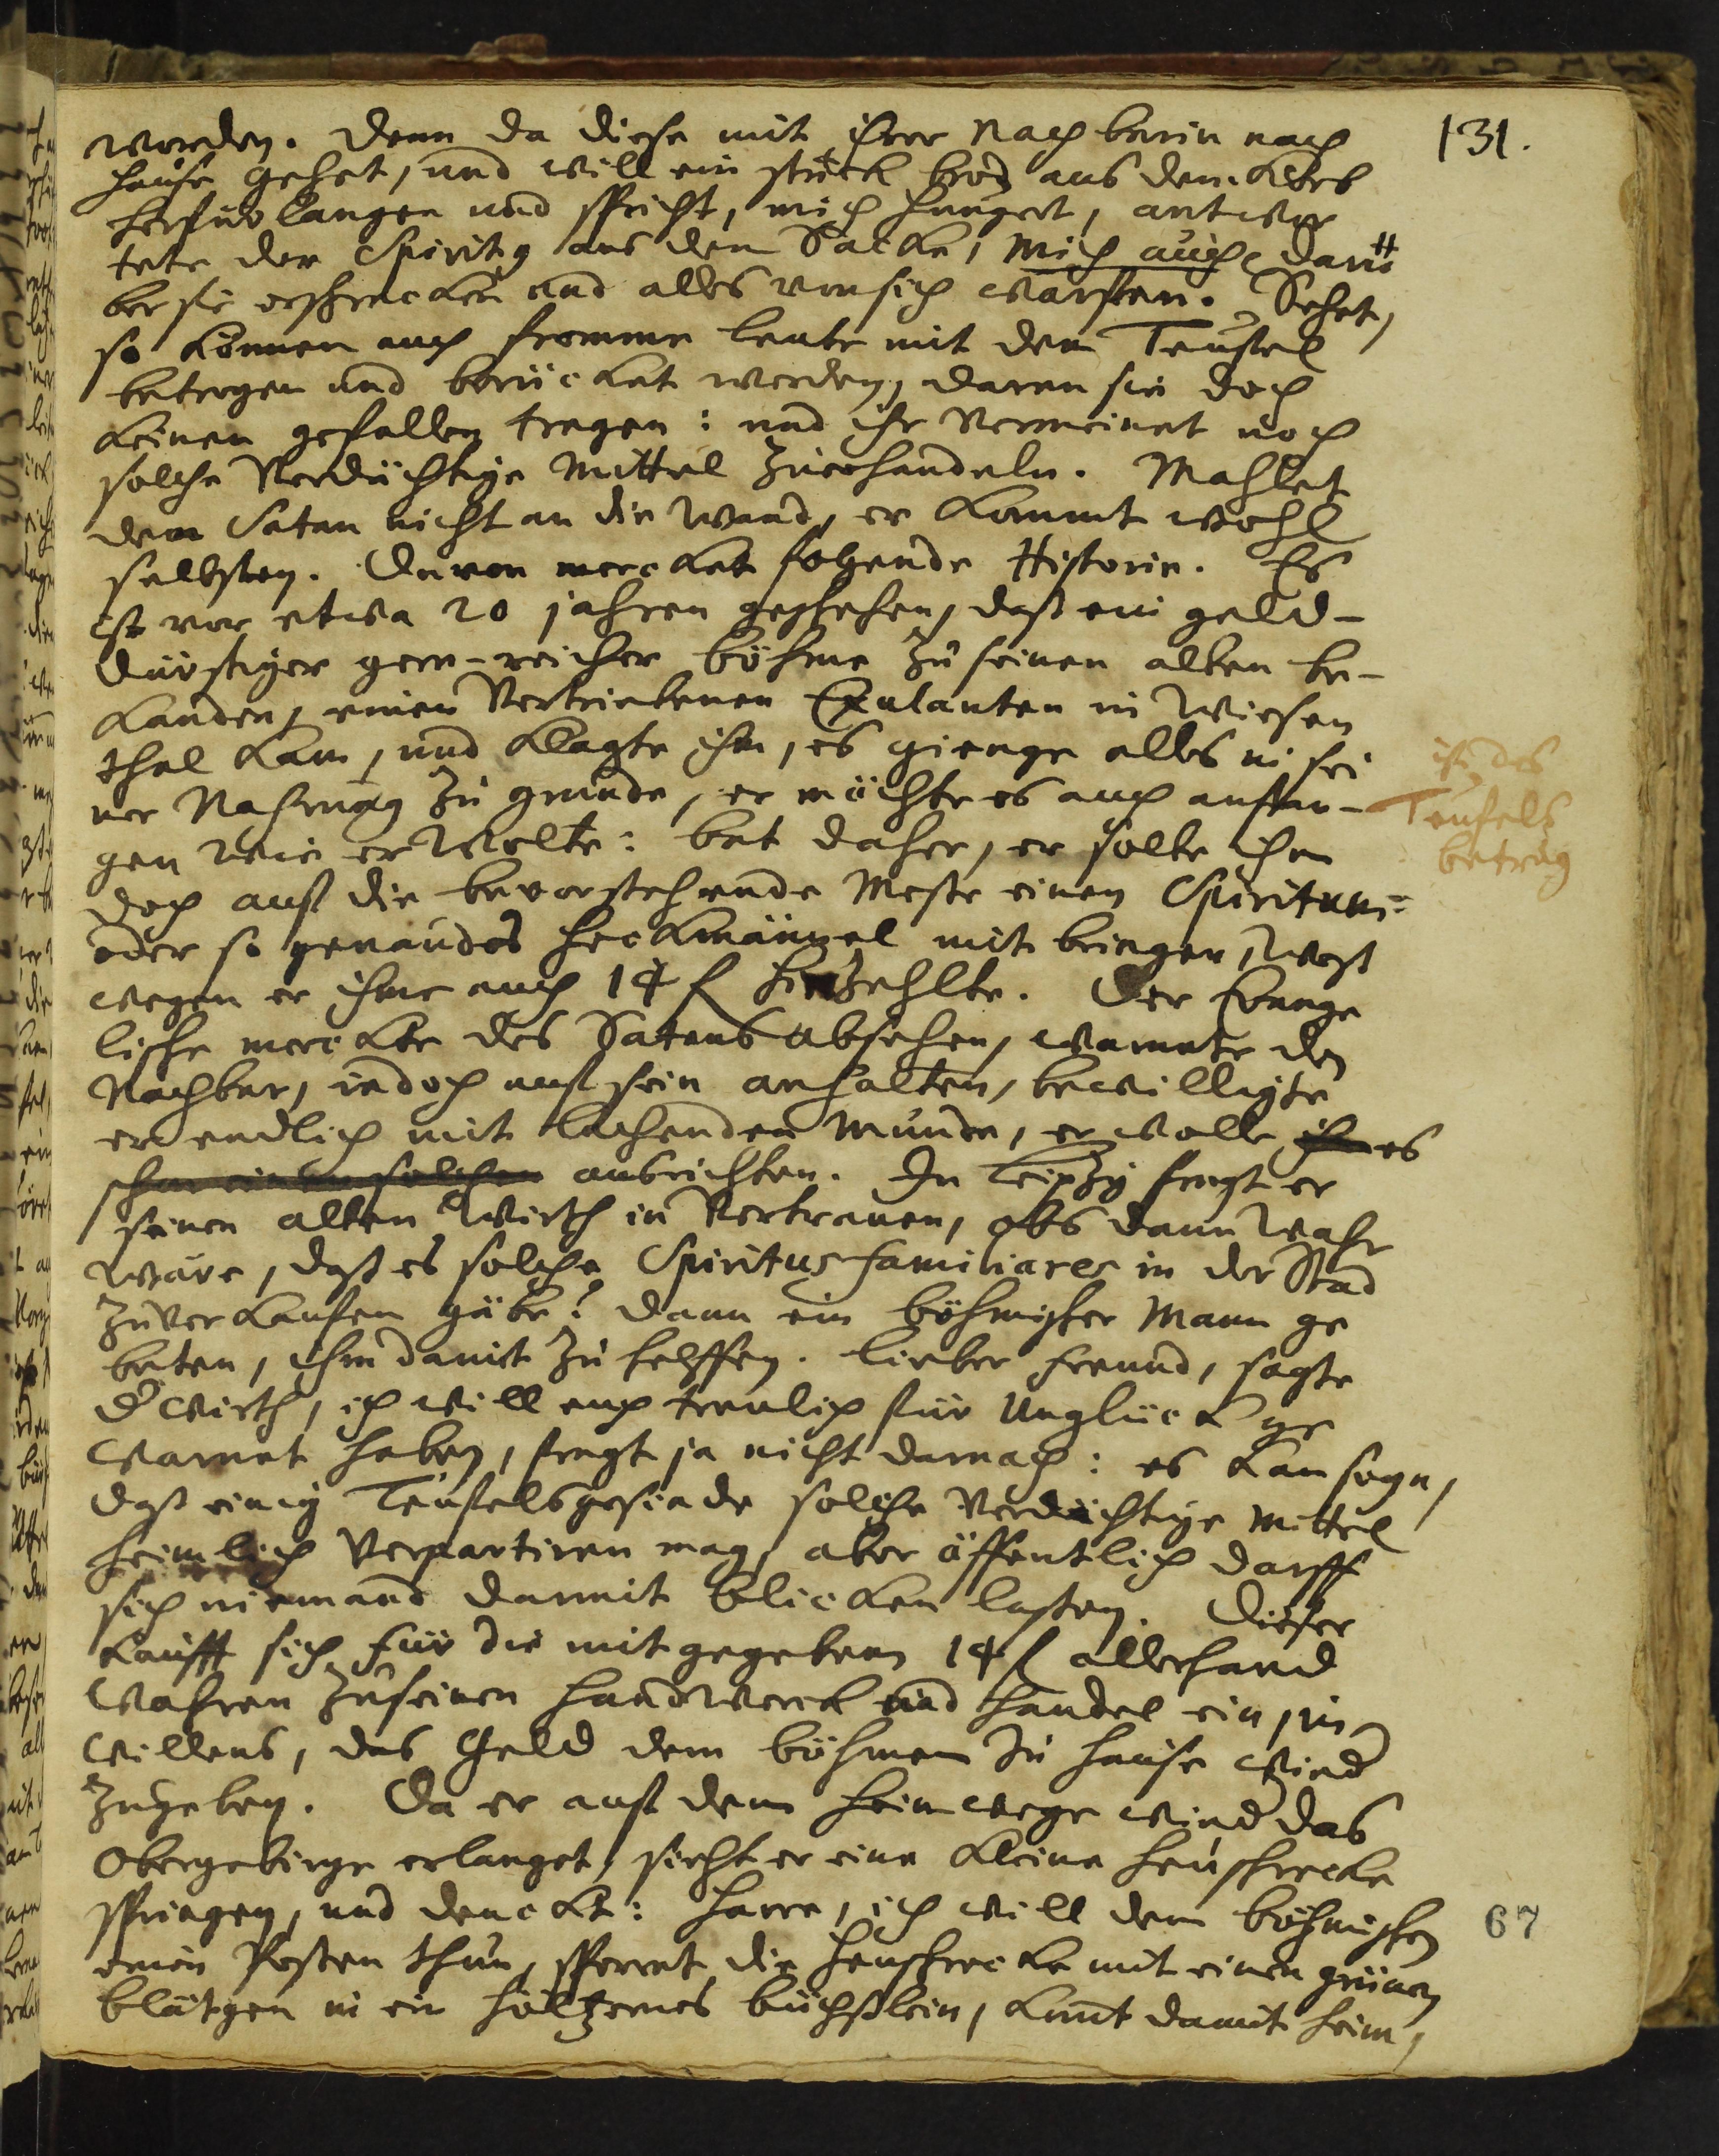 131.
worden. Denn da diese mit ihrer Nachbarin nach
Hause gehet, und will ein stück brod aus dem Korb
herfür langen und spricht, mich hungert, antwor
tete der Spiritus aus dem Sacke, mich auch, darü
ber sie erschrecken und alles von sich warffen. Sehet,
so können auch fromme leute mit dem Teuffel
betrogen und berücket werden, daran sie doch
keinen gefallen tragen: und ihr vermeinet noch
solche verdächtige Mittel zuerhandeln. Mahlet
den Satan nicht an die Wand, er kommt wohl
selbsten. Davon mercket folgende Historie. Es
ist vor etwa 20 jahren geschehen, daß ein geld-
dürstiger gern-reicher Böhme zu seinen alten be-
kanden, einen Vertriebenen Exulanten in Wiesen
thal kam, und klagte ihm, es gienge alles in sei
ner Nahrung zu grunde, er möchte es auch anfan-
gen wie er wolte: bat daher, er solte ihm
doch auf die bevorstehende Messe einen Spiritum
oder so genandes Heckmännel mit bringen, West
wegen er ihme auch 14 f hinzehlte. Der Evange
lische merckte des Satans absehen, warnete den
Nachbar, iedoch auf sein anhalten, bewilligte
er endlich mit lachenden Munde, er wolle ihm es
ihm einen solchen ausrichten. In Leipzig fragt er
seinen alten Wirth in Vertrauen, obs dann wahr
wäre, daß es solche Spiritus familiares in der Stad
zuverkaufen gäbe? dann ein böhmischer Mann ge
beten, ihm damit zu helffen. lieber freund, sagte
der Wirth, ich will euch treulich für Unglück ge
warnet haben, fragt ja nicht darnach: es kan seyn,
daß einig Teufelsgesinde solche verdächtige mittel
heimlich verpartiren mag, aber öffentlich darff
sich niemand damit blicken lassen. Dieser
kaufft sich für die mitgegeben 14 f allerhand
Wahren zu seinen handwerck und handel ein, in
Willens, das Geld dem böhmen zu hause wieder
zugeben. Da er auf dem heimwege wieder das
Obergebirge erlanget, sieht er eine kleine heuschrecke
springen, und denckt: harre, ich will dem böhmischen
einen Possen thun, sperret die heuschrecke mit einen grünen
blätgen in ein höltzernes büchslein, kömt damit heim,
ist des
Teufels
betrug
67